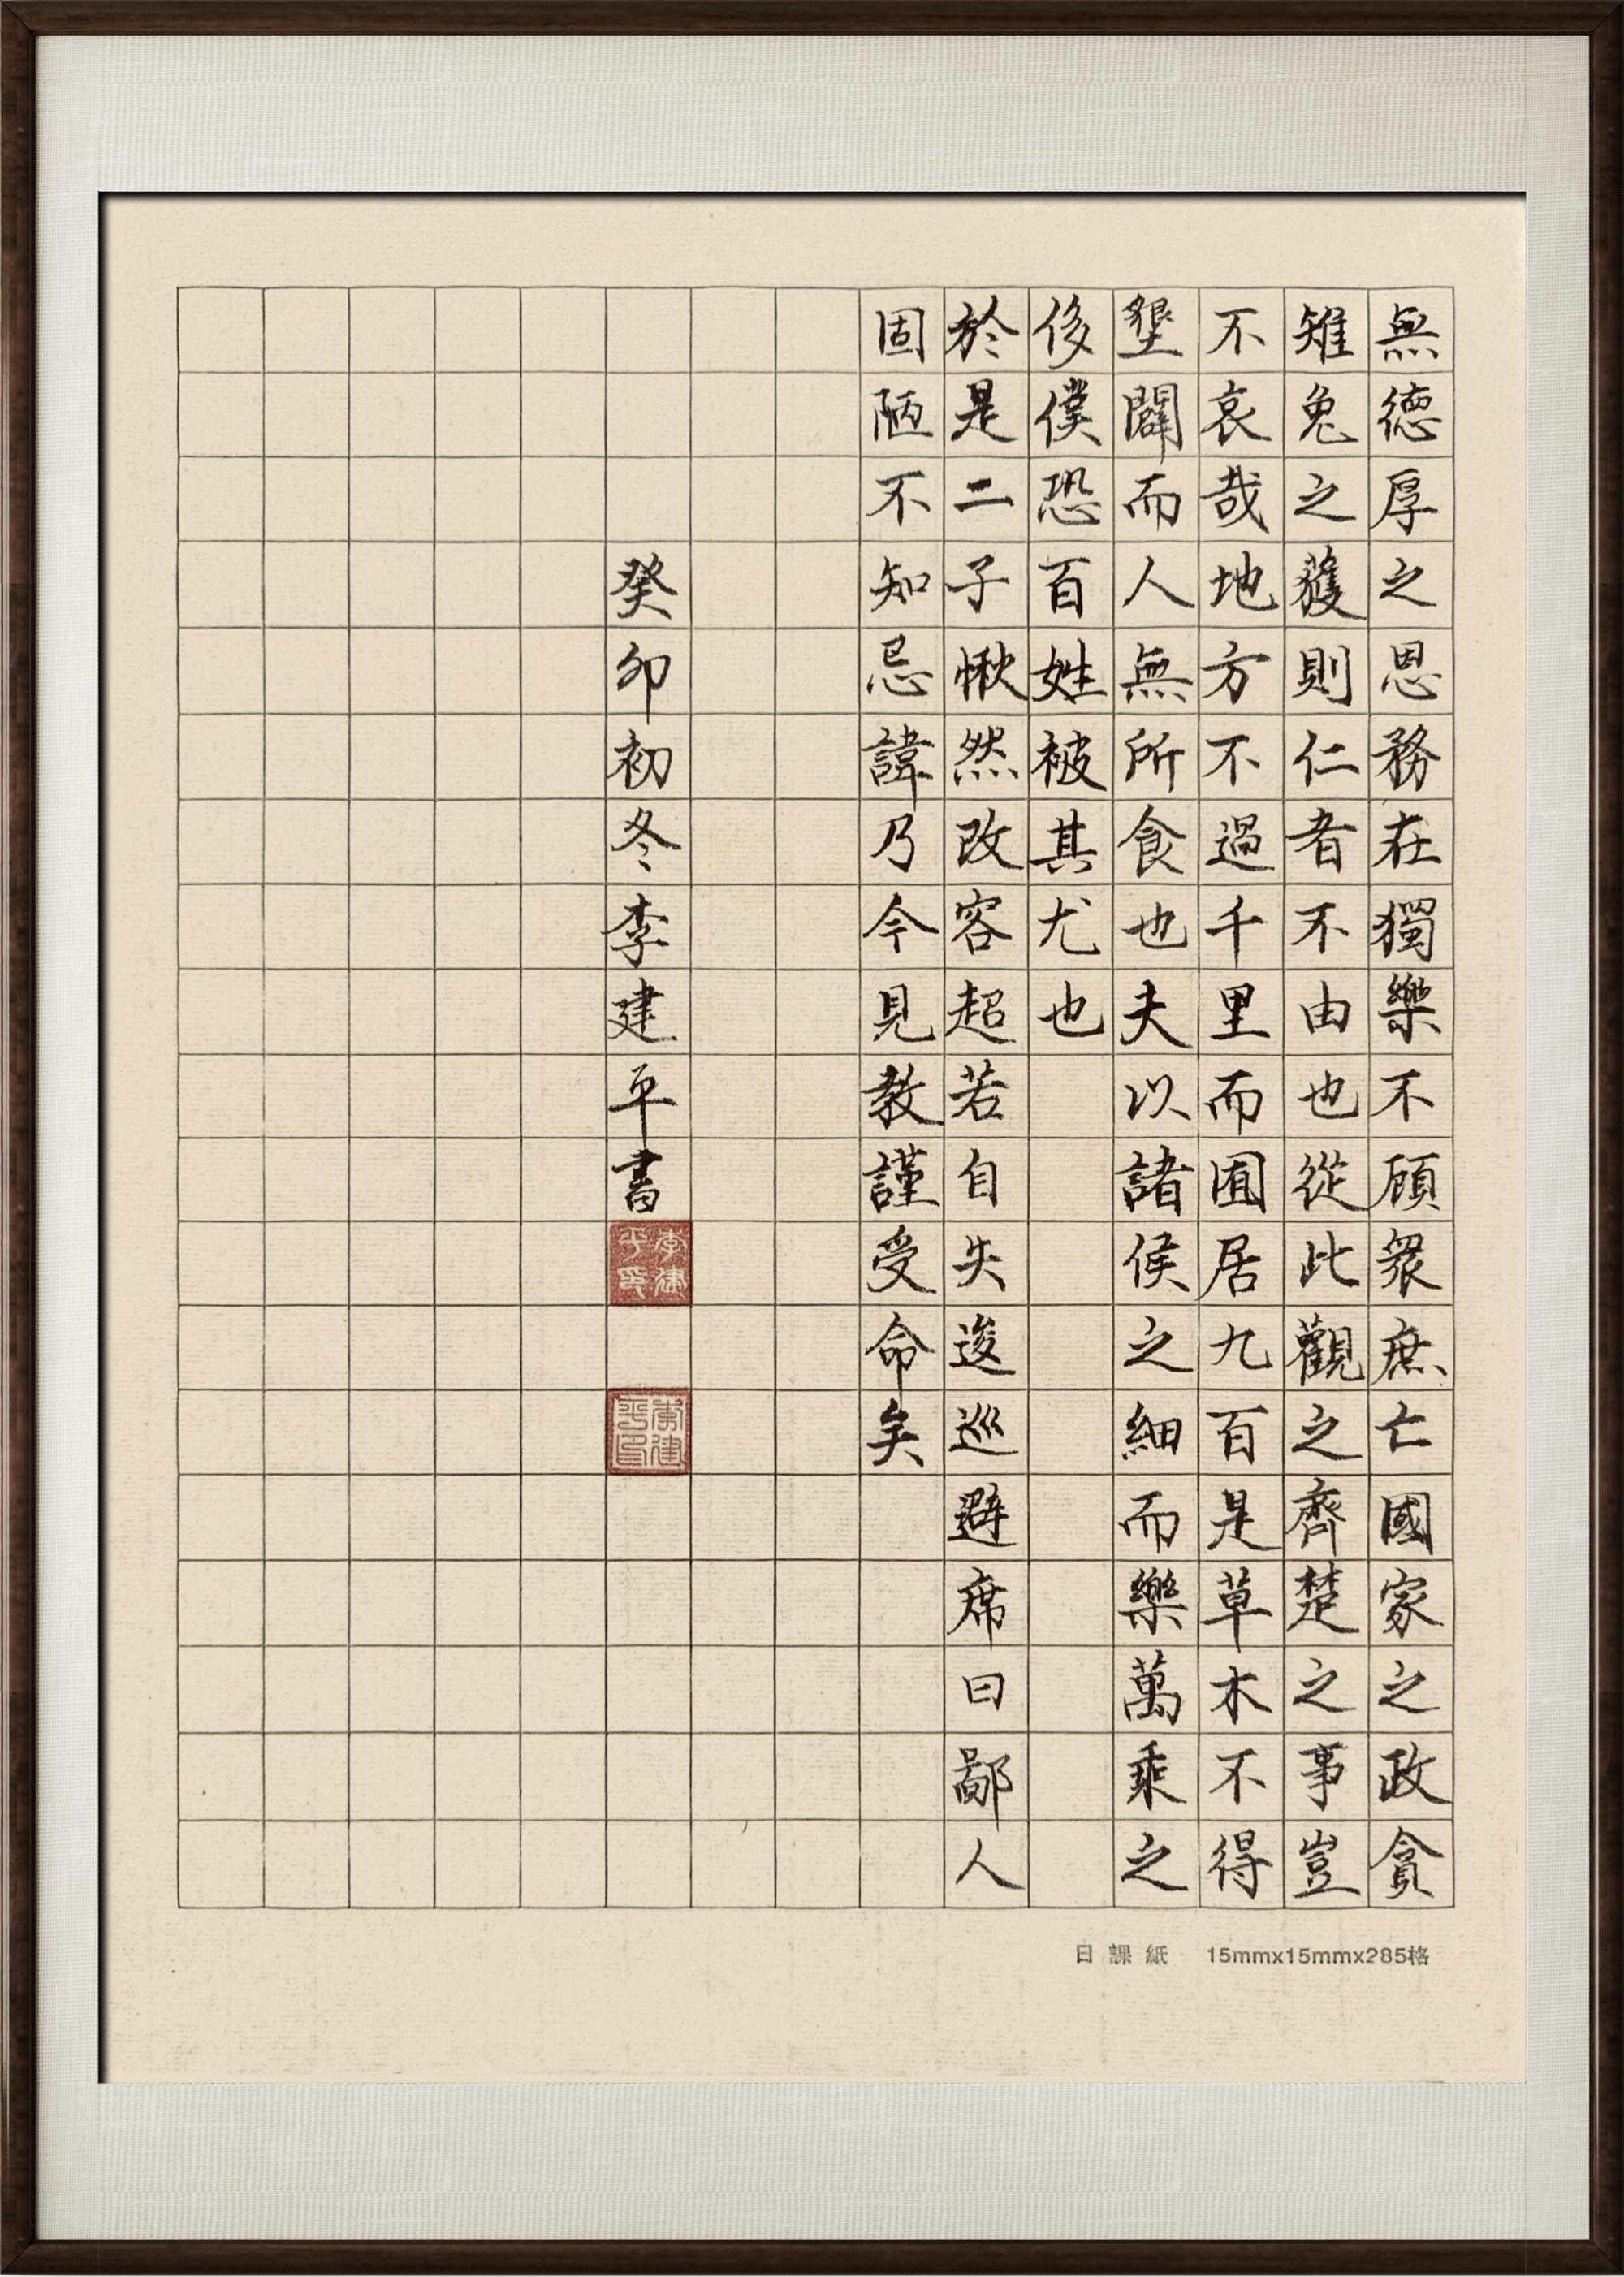 無德厚之恩務在獨樂不顧眾庶亡國家之政貪
雉兔之獲則仁者不由也從此觀之齊楚之事豈
不哀哉地方不過千里而囿居九百是草木不得
墾闢而人無所食也夫以諸侯之細而樂萬乘之
侈僕恐百姓被其尤也
於是二子愀然改容超若自失逡巡避席曰鄙人
固陋不知忌諱乃今見教謹受命矣
癸卯初冬李建平書
李建平印
李建平印
日課紙 15mmx15mmx285格